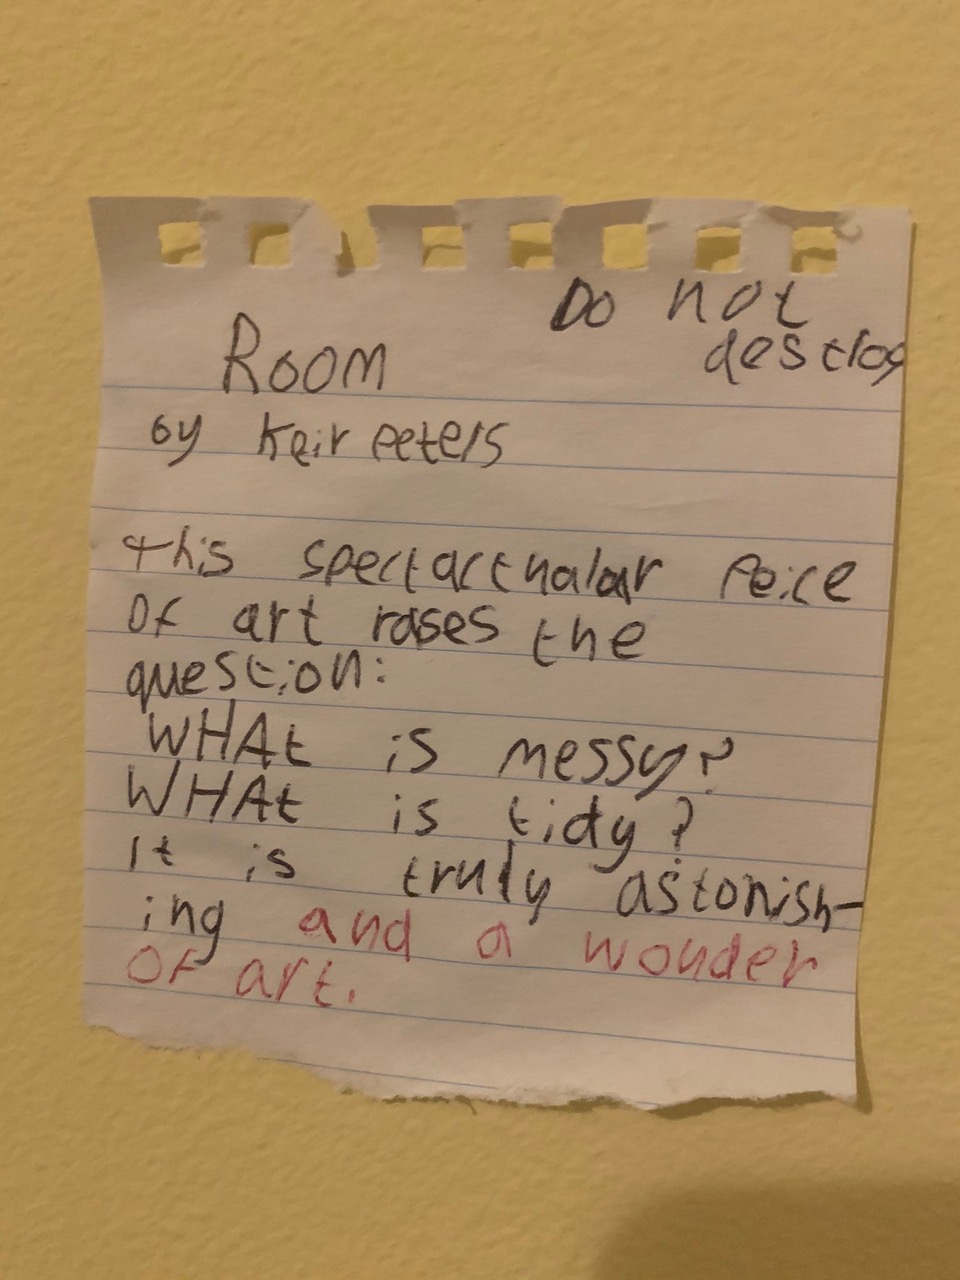 Do not
destroy
Room
by Keir Peters
this spectacthalar Peice
of art rases the
question:
WHAt is messy?
WHAt is tidy?
It is truly astonish-
ing and a wonder
of art.